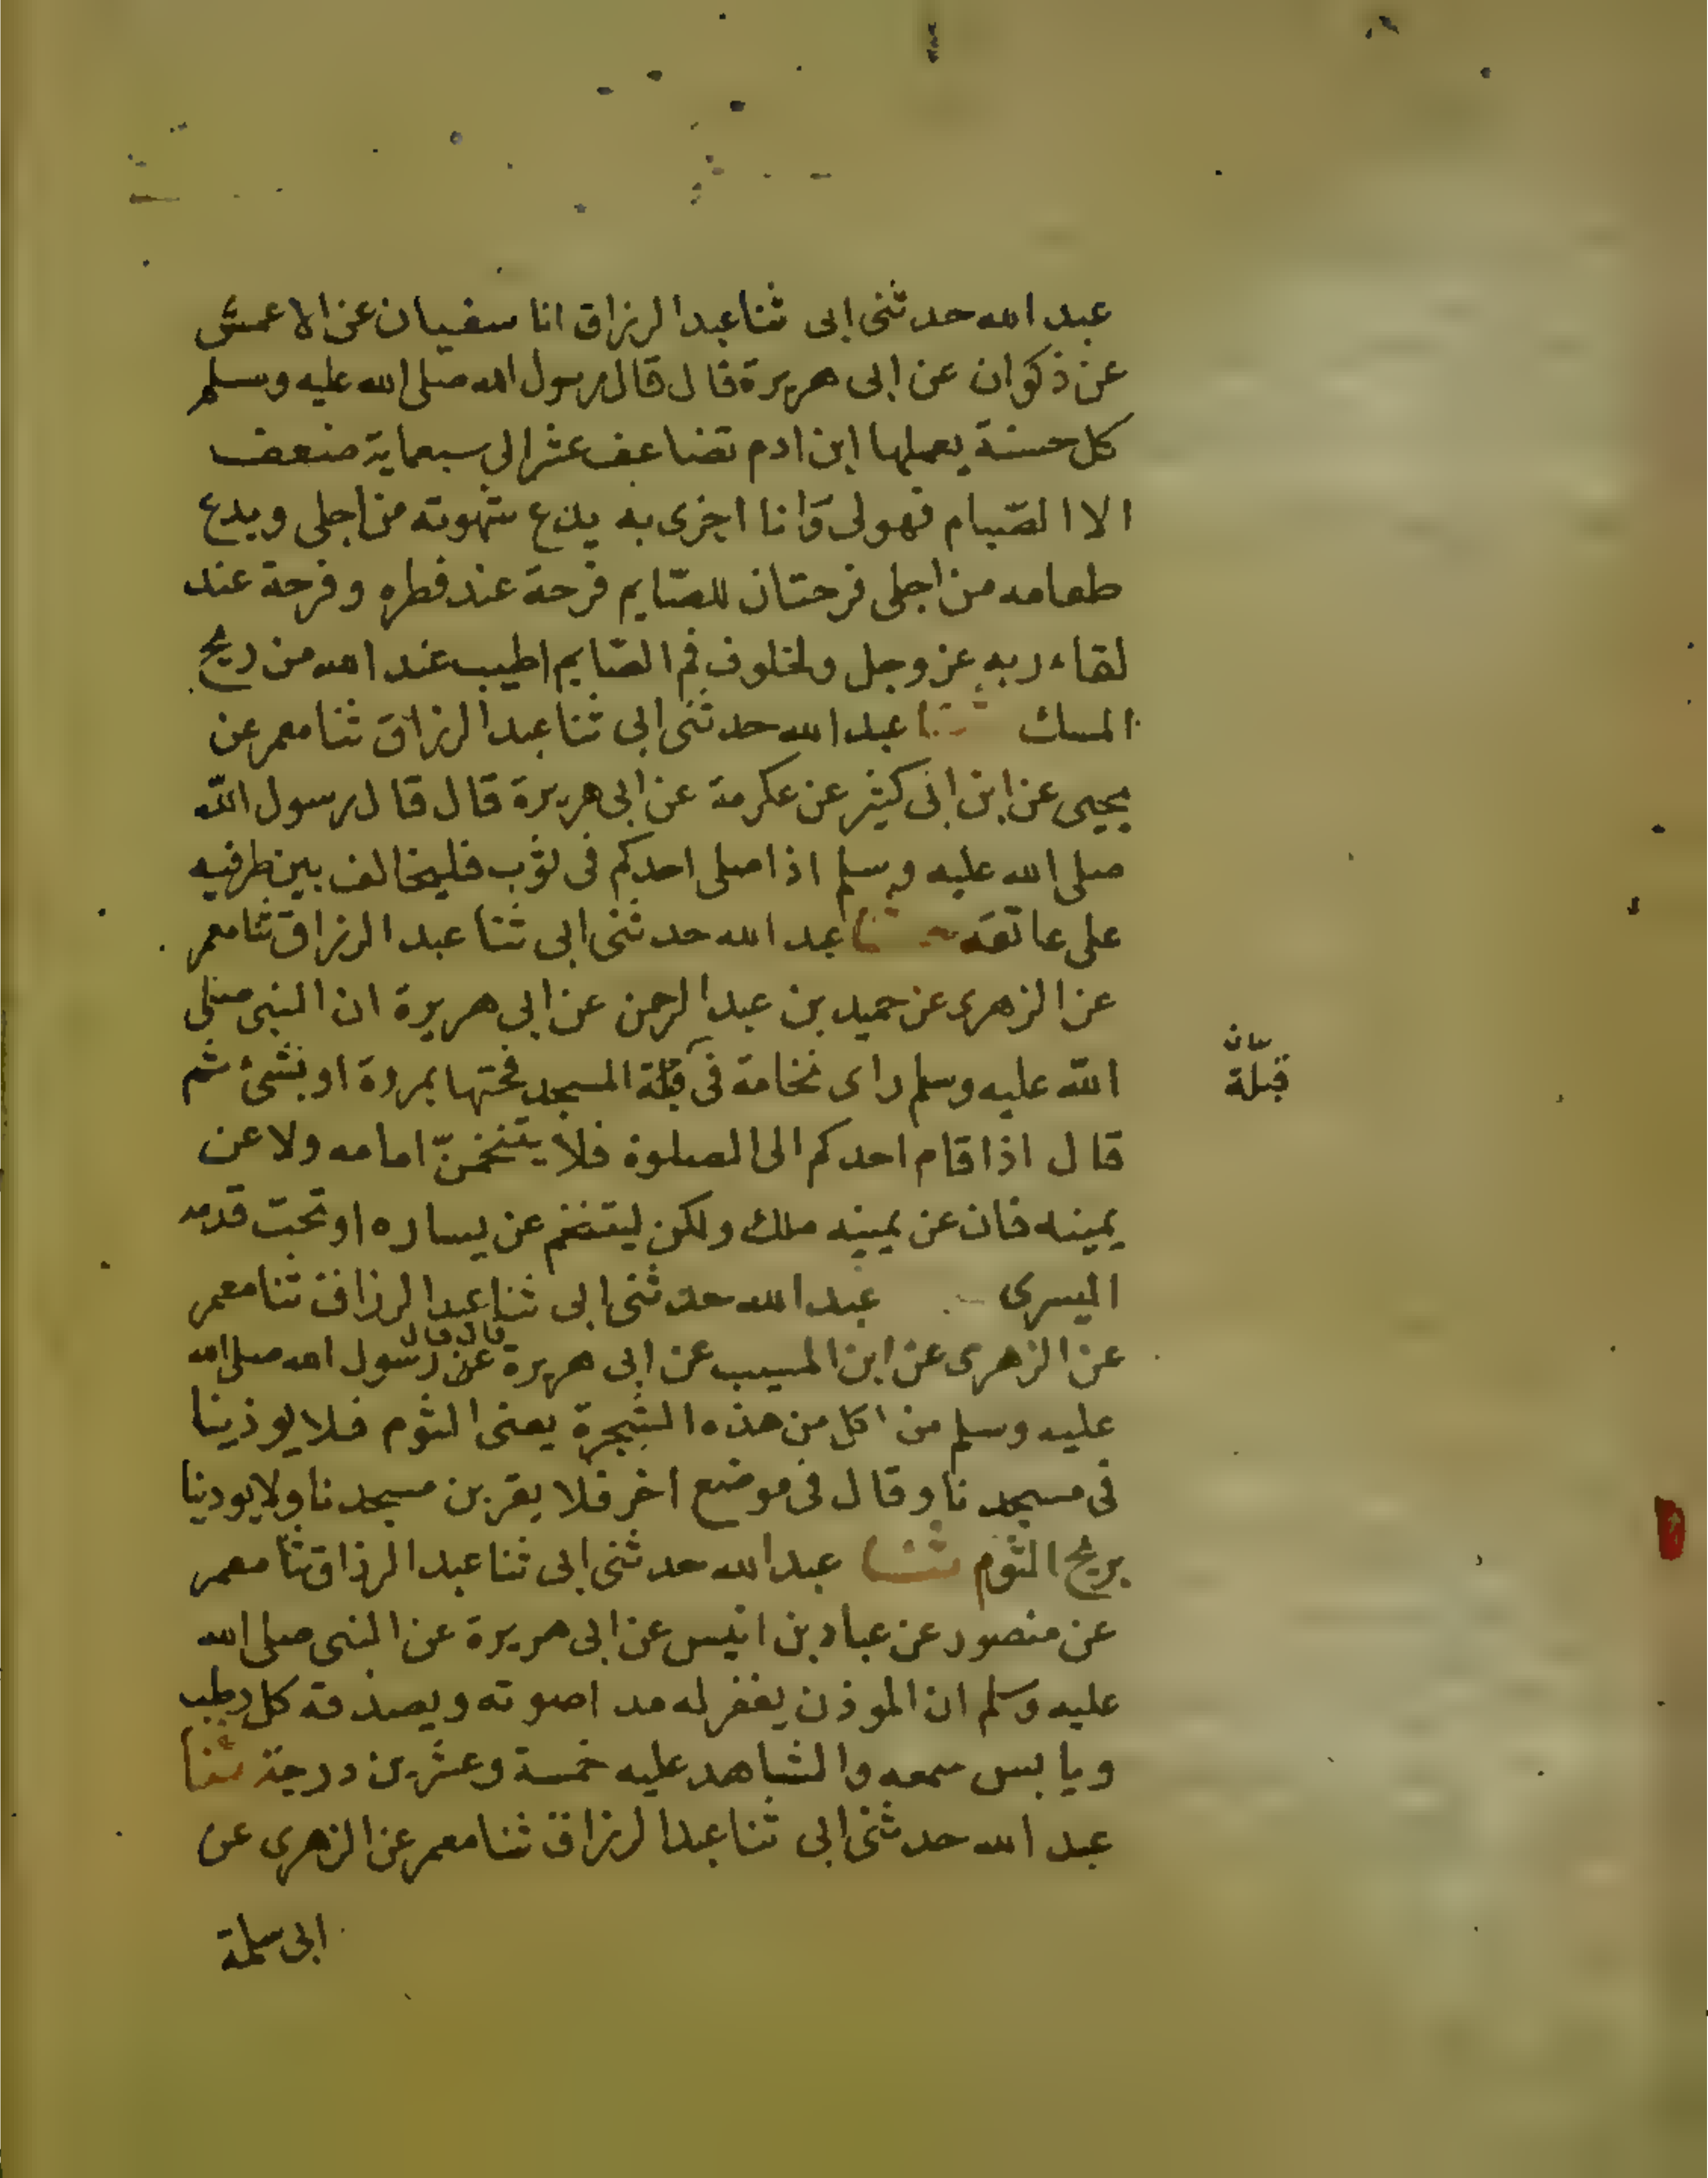 عبد الله حدثنى ابى ثنا عبد الرزاق انا سفيان عن الاعمش
عن ذكوان عن ابى هريرة قال قال رسول الله صلى الله عليه وسلم
كل حسنة يعملها ابن ادم تضاعف عشرا الى سبعماية ضعف
الا الصّيام فهو لى وَانا اجزى به يدع شهوته من اجلى ويدع
طعامه من اجلى فرحتان للصّايم فرحة عند فطره وفرحة عند
لقاء ربه عز وجل ولخلوف فم الصّايم اطيب عند الله من ريح
المسك ثنا عبد الله حدثنى ابى ثنا عبد الرزاق ثنا معمر عن
يحيى عن ابن ابى كثير عن عكرمة عن ابى هريرة قال قال رسول الله
صلى الله عليه وسلم اذا صلى احدكم فى ثوب فليخالف بين طرفيه
على عاتقه ثنا عبد الله حدثنى ابى ثنا عبد الرزاق ثنا معمر
عن الزهرى عن حميد بن عبد الرحمن عن ابى هريرة ان النبى صلى
الله عليه وسلم راى نخامة فى قبلة المسجد فحتها بمروة او بشئ ثم
بيان
قبلة
قال اذا قام احدكم الى الصلوة فلا يتنخمنّ امامه ولا عن
يمينه فان عن يمينه ملك ولكن ليتنخم عن يساره او تحت قدمه
اليسرى عبد الله حدثنى ابى ثنا عبد الرزاق ثنا معمر
قال قال
عن الزهرى عن ابن المسيب عن ابى هريرة عن رسول الله صلى الله
عليه وسلم من اكل من هذه الشجرة يعنى الثوم فلا يوذينا
فى مسجدنا وقال فى موضع اخر فلا يقربن مسجدنا ولا يوذينا
بريح الثوم ثنا عبد الله حدثنى ابى ثنا عبد الرزاق ثنا معمر
عن منصور عن عباد بن انيس عن ابى هريرة عن النبى صلى الله
عليه وسلم ان الموذن يغفر له مدا صوته ويصدقه كل رطب
ويابس سمعه والشاهد عليه خمسة وعشرين درجة ثنا
عبد الله حدثنى ابى ثنا عبد الرزاق ثنا معمر عن الزهرى عن
ابى سلمة